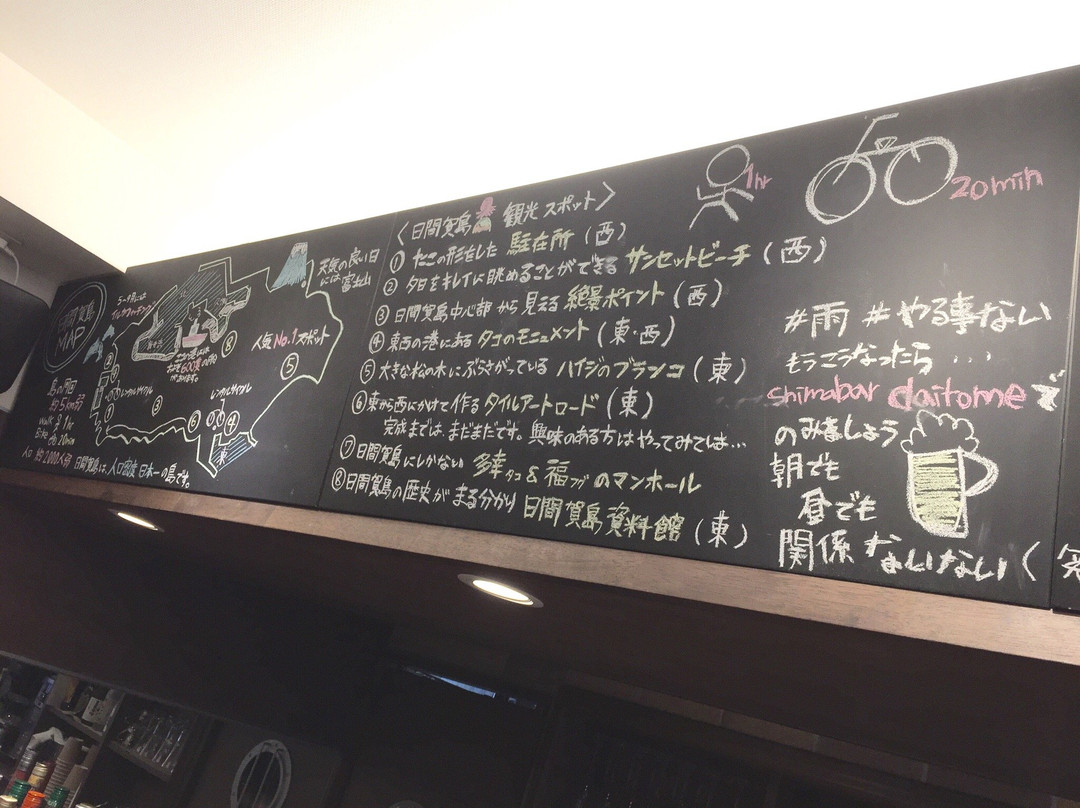 日間賀島
MAP
5〜9月には
イルカウォッチング
天気の良い日
には富士山
人気No.1スポット
⑧
⑤
レンタルサイクル
①
②
③
レンタルサイクル
⑥
④
東
島の周囲
約5km弱
walk 約1hr
Bike 約20min
人口 約2000人弱 日間賀島は、人口密度日本一の島です。
〈日間賀島 観光スポット〉
① たこの形をした 駐在所 (西)
② 夕日をキレイに眺めることができる サンセットビーチ (西)
③ 日間賀島中心部から見える絶景ポイント (西)
④ 東西の港にある タコのモニュメント (東・西)
⑤ 大きな松の木にぶらさがっている ハイジのブランコ (東)
⑥ 東から西にかけて作る タイルアートロード (東)
完成までは、まだまだです。興味のある方はやってみては…
⑦ 日間賀島にしかない 多幸タコ&福フグのマンホール
⑧ 日間賀島の歴史がまる分かり 日間賀島資料館 (東)
1hr
20min
#雨 #やる事ない
もうこうなったら…
shimabar daitomeで
のみましょう
朝でも
昼でも
関係ないない(笑